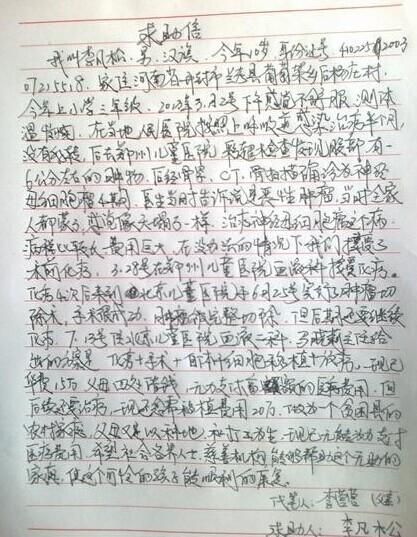 求助信
我叫李凡松,男,汉族,今年10岁,身份证号 4102252003
07215518,家住河南省开封市兰考县葡萄架乡后杨庄村,
今年上小学三年级,2013年3月2号下午感觉不舒服,测体
温发烧,在当地人民医院按照上呼吸道感染治疗半个月,
没有好转,后去郑州儿童医院,彩超检查发现腹部有一
6公分左右的肿物,后经骨穿、CT、骨扫描确诊为神经
母细胞瘤4期,医生当时告诉说是恶性肿瘤,当时全家
人都蒙了,感觉像天塌了一样,治疗神经母细胞瘤这个病
病程比较长,费用巨大,在没办法的情况下我们接受了
术前化疗,3.28号在郑州儿童医院血液科接受化疗。
化疗4次后来到北京儿童医院于6月25号实行了肿瘤切
除术,手术很成功,肿瘤被完整切除,但后期还要继续
化疗,7.13号住北京儿童医院血液二科,马晓莉主任给
出的方案是 化疗+手术+自体干细胞移植+放疗,现已
花费15万,父母四处借钱,无力支付高额的医疗费用,但
后续还要治疗,现还需移植费用20万,做为一个贫困县的
农村家庭,父母只是以种地、和打工为生,现已无能为力支付
医疗费用,希望社会各界人士,慈善机构能够帮助这个无助的
家庭,使这个可怜的孩子能顺利的康复。
代笔人:李营营(父亲)
求助人:李凡松